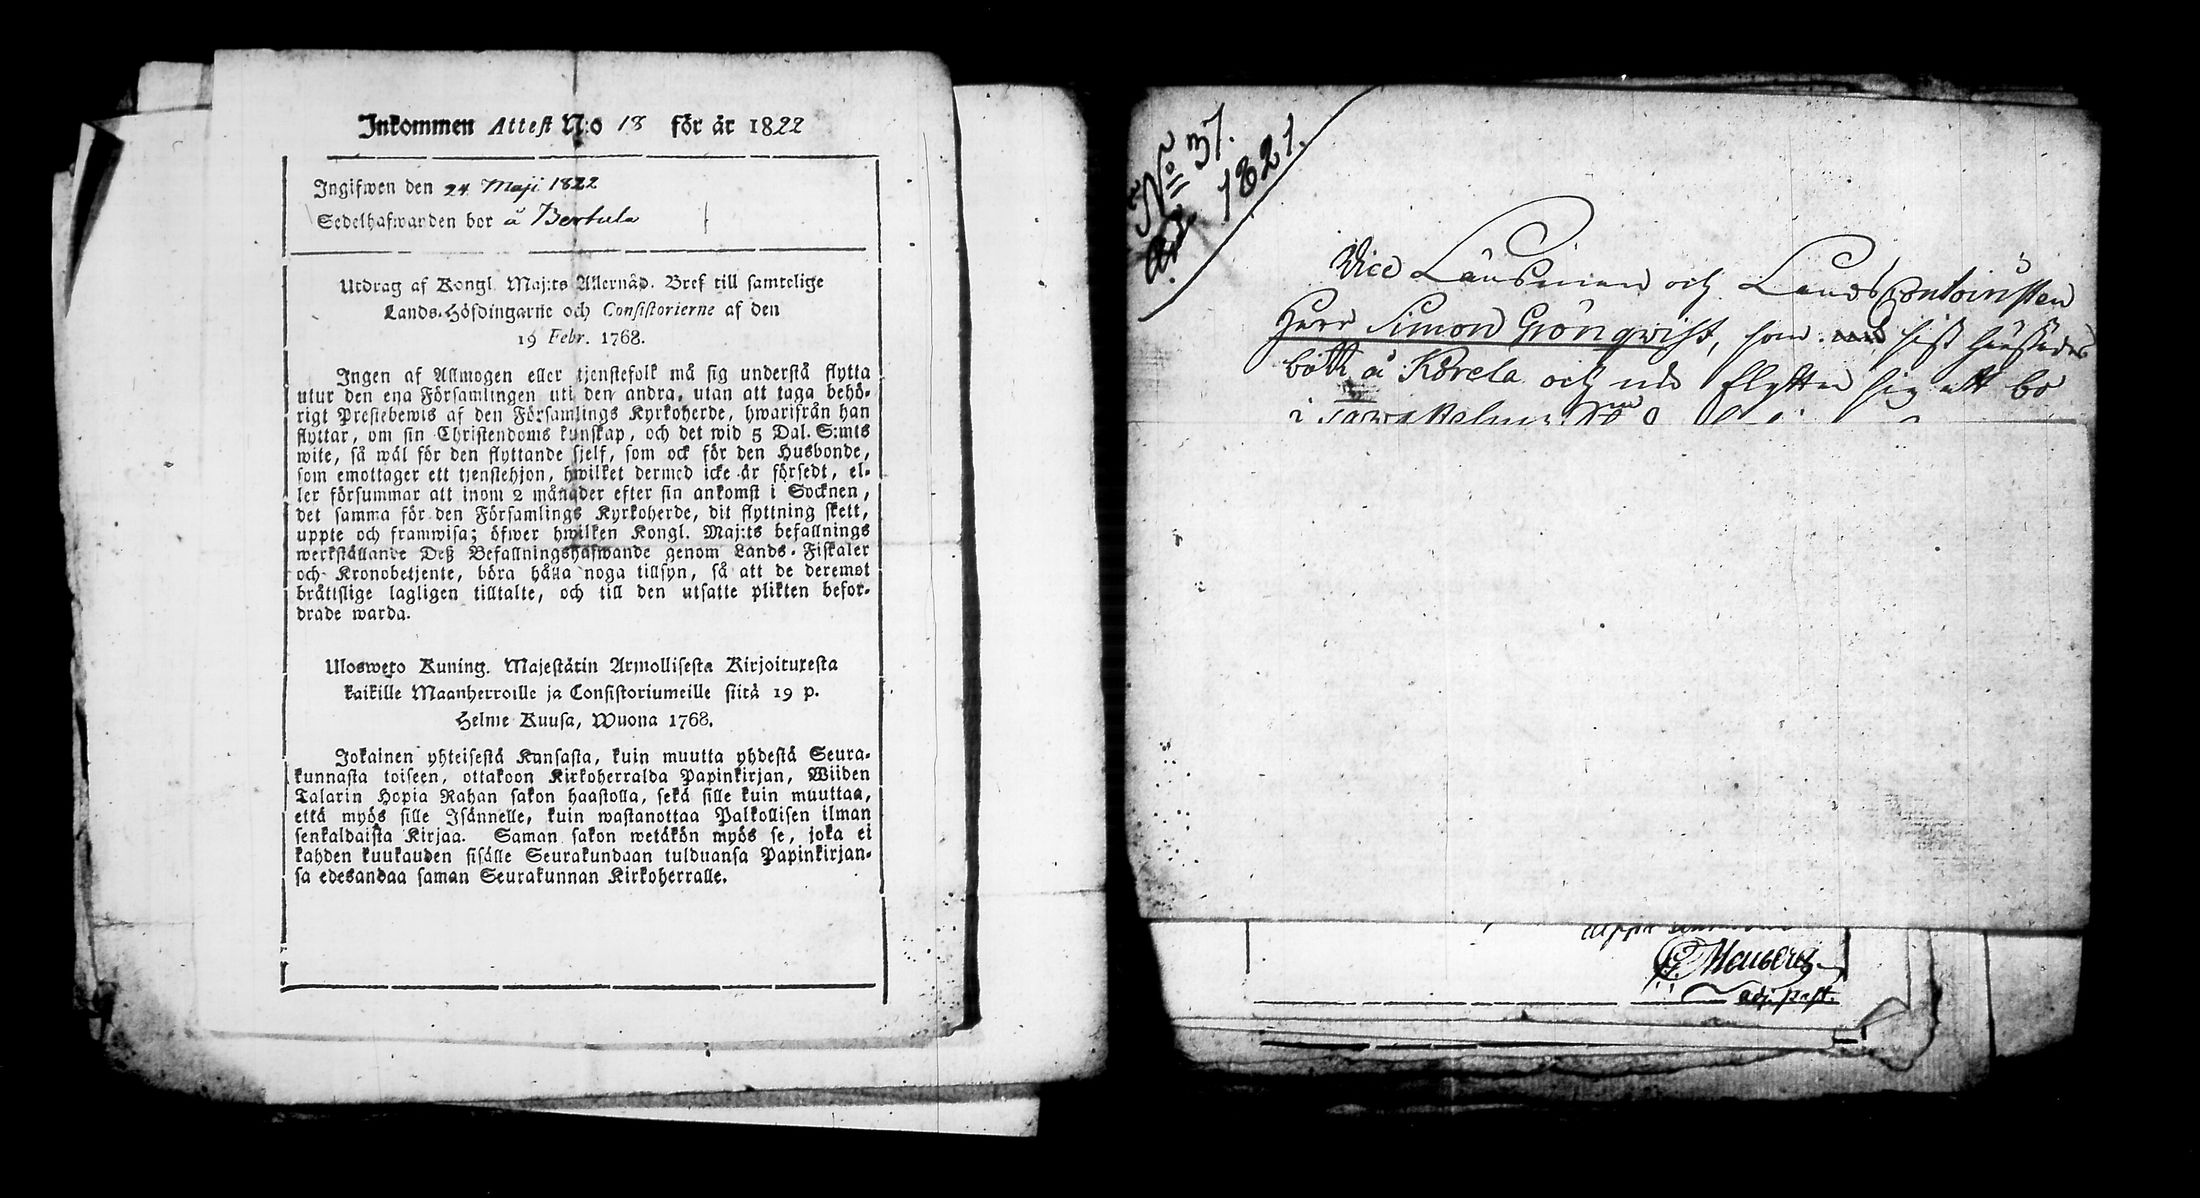 Inkommen Attest N:o 18 för år 1822
Ingifwen den 24 Maji 1822
Sedelhafwanden bor å Bertula
Utdrag af Kongl. Maj:ts Allernåd. Bref till samtelige
Lands-Höfdingarne och Consistorierne af den
19 Febr. 1768.
Ingen af Allmogen eller tjenstefolk må sig understå flytta
utur den ena Församlingen uti den andra, utan att taga behö-
rigt Prestebewis af den Församlings Kyrkoherde, hwarifrån han
flyttar, om sin Christendoms kunskap, och det wid 5 Dal. S:mts
wite, så wäl för den flyttande sjelf, som ock för den Husbonde,
som emottager ett tjenstehjon, hwilket dermed icke är försedt, el-
ler försummar att inom 2 månader efter sin ankomst i Socknen,
det samma för den Församlings Kyrkoherde, dit flyttning skett,
uppte och framwisa; öfwer hwilken Kongl. Maj:ts befallnings
werkställande Deß Befallningshafwande genom Lands-Fiskaler
och Kronobetjente, böra hålla noga tillsyn, så att de deremot
bråttslige lagligen tilltalte, och till den utsatte plikten befor-
drade warda.
Ulosweto Kuning. Majestätin Armollisesta Kirjoituxesta
kaikille Maanherroille ja Consistoriumeille siitä 19 p.
Helme Kuusa, Wuona 1768.
Jokainen yhteisestä Kansasta, kuin muutta yhdestä Seura-
kunnasta toiseen, ottakoon Kirkoherralda Papinkirjan, Wiiden
Talarin Hopia Rahan sakon haastolla, sekä sille kuin muuttaa,
että myös sille Isännelle, kuin wastanottaa Palkollisen ilman
senkaldaista Kirjaa. Saman sakon wetäkön myös se, joka ei
kahden kuukauden sisälle Seurakundaan tulduansa Papinkirjan-
sa edesandaa saman Seurakunnan Kirkoherralle.
N:o 37.
1821.
Vice Länsman och Lands Contoiristen
Herr Simon Grönqwist, som sist härstädes
bott å Korela och nu flyttar sig att bo
i
adj. past.